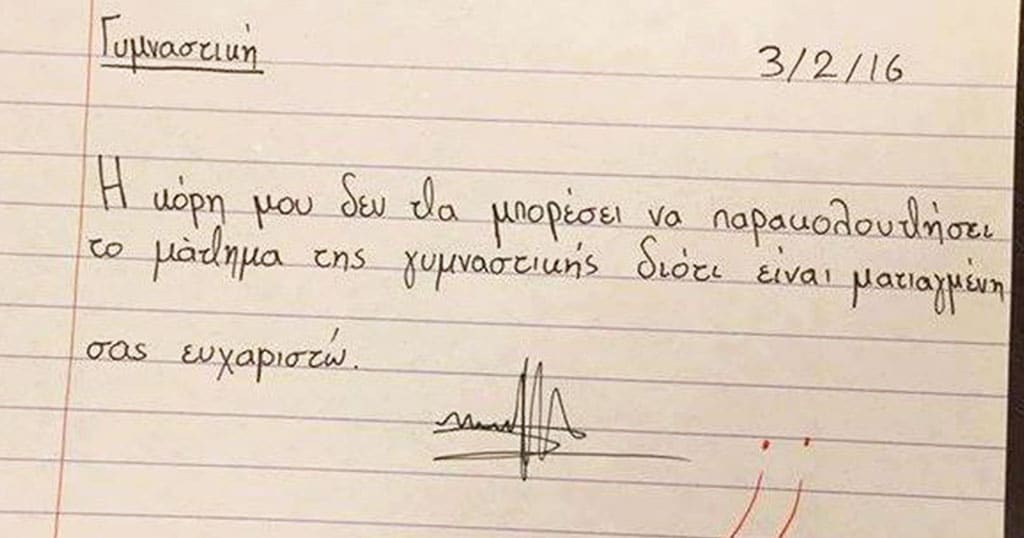 Γυμναστική
3/2/16
Η κόρη μου δεν θα μπορέσει να παρακολουθήσει
το μάθημα της γυμναστικής διότι είναι ματιαγμένη
σας ευχαριστώ.